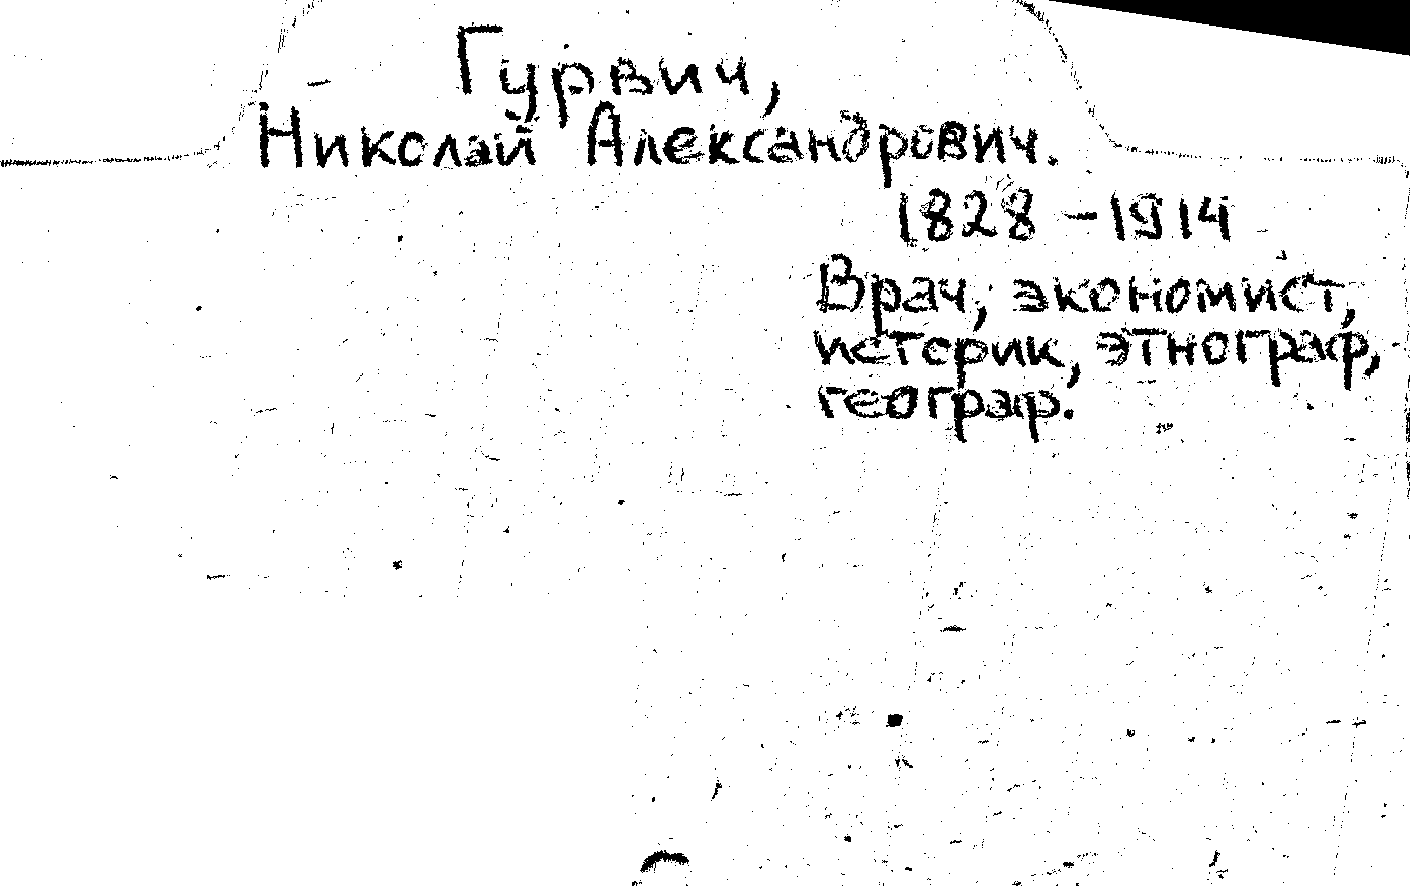 Гурвич,
Николай Александрович.
1828 - 1914
Врач, экономист,
историк, этнограф,
географ.